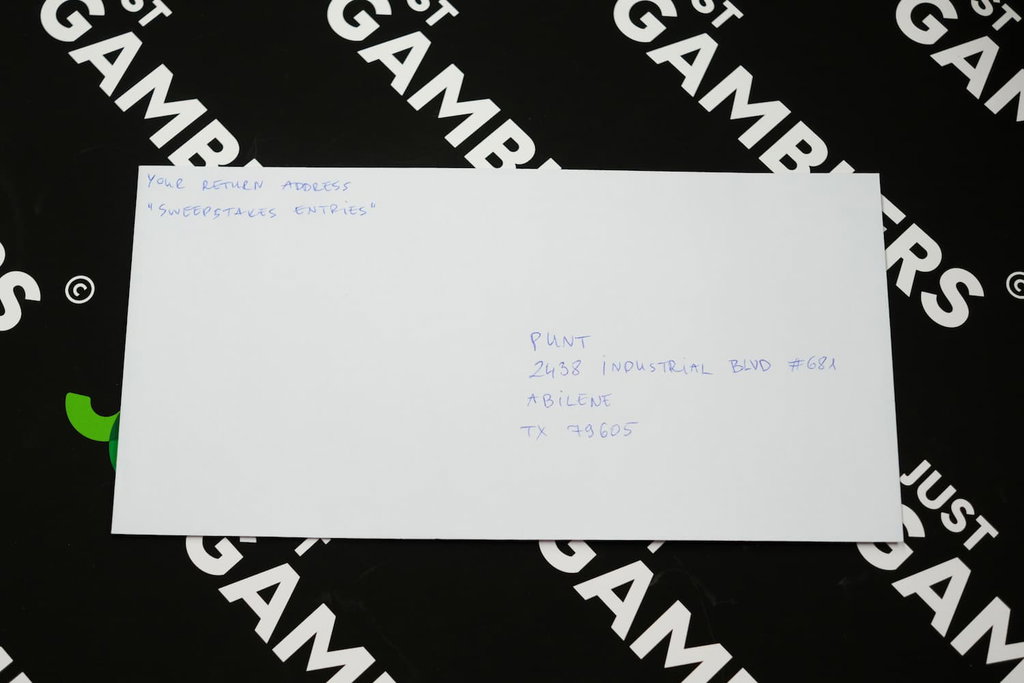 JUST
GAMBLERS
JUST
GAMBLERS
GAMBLERS
GAM
©
©
YOUR RETURN ADDRESS
"SWEEPSTAKES ENTRIES"
PUNT
2438 INDUSTRIAL BLVD #681
ABILENE
TX 79605
GAM
GAMB
JUST
GAM